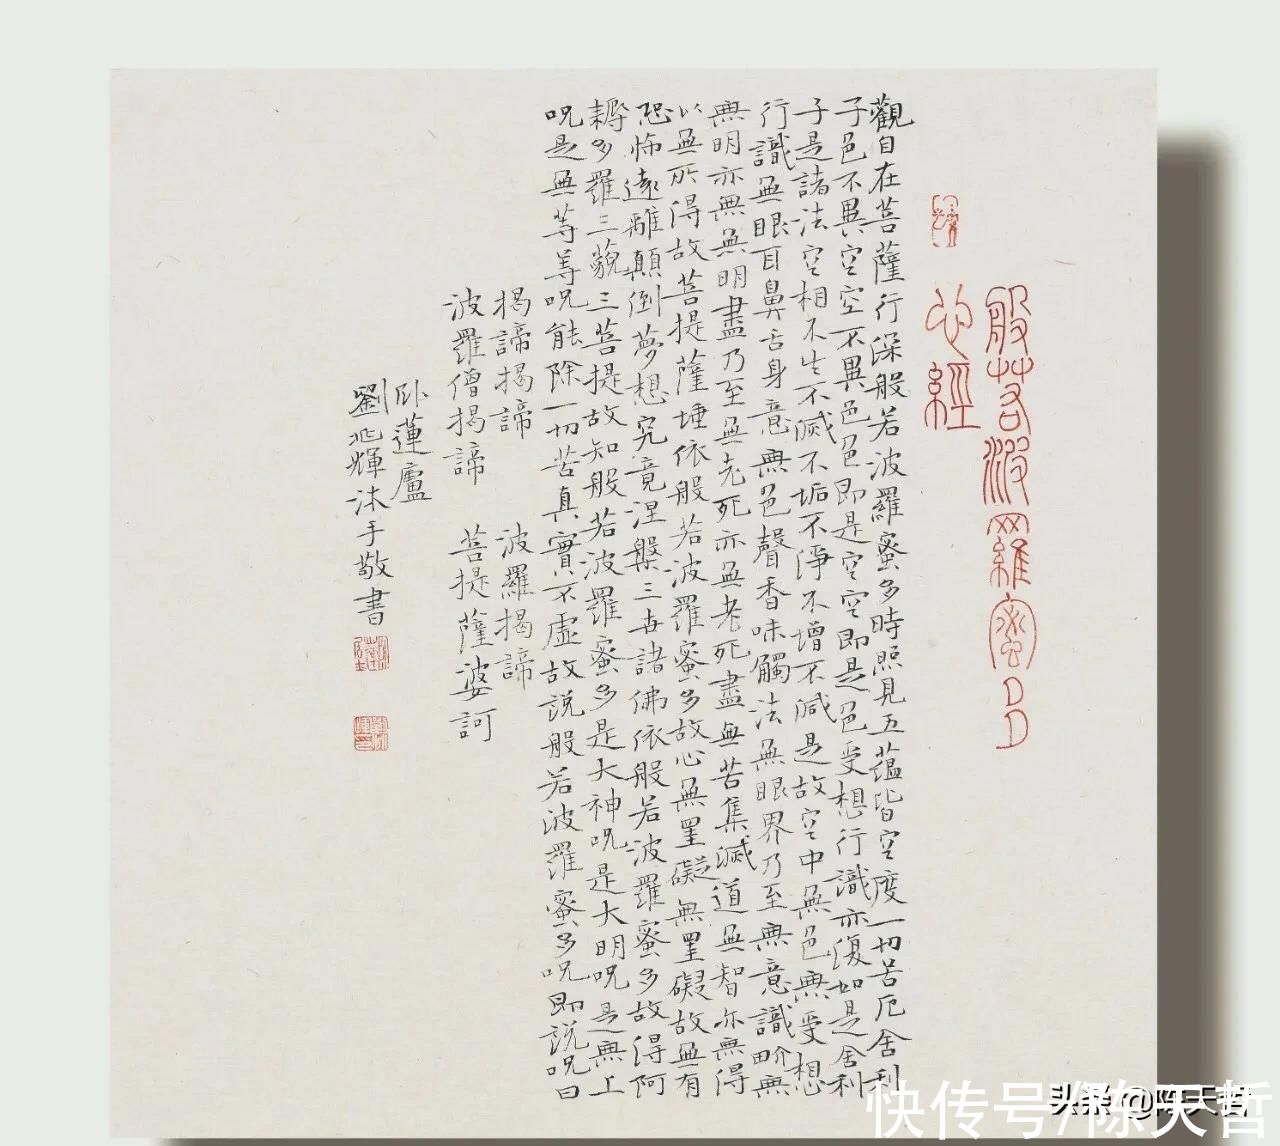 般若波羅蜜多
心經
觀自在菩薩行深般若波羅蜜多時照見五蘊皆空度一切苦厄舍利
子色不異空空不異色色即是空空即是色受想行識亦復如是舍利
子是諸法空相不生不滅不垢不淨不增不減是故空中無色無受想
行識無眼耳鼻舌身意無色聲香味觸法無眼界乃至無意識畍無
無明亦無無明盡乃至無老死亦無老死盡無苦集滅道無智亦無得
以無所得故菩提薩埵依般若波羅蜜多故心無罣礙無罣礙故無有
恐怖遠離顛倒夢想究竟涅槃三世諸佛依般若波羅蜜多故得阿
耨多羅三藐三菩提故知般若波羅蜜多是大神呪是大明呪是無上
呪是無等等呪能除一切苦真實不虛故説般若波羅蜜多呪即説呪曰
揭諦揭諦 波羅揭諦
波羅僧揭諦 菩提薩婆訶
臥蓮廬
劉兆輝沐手敬書
快传号/陈天哲
头条 @陈天哲